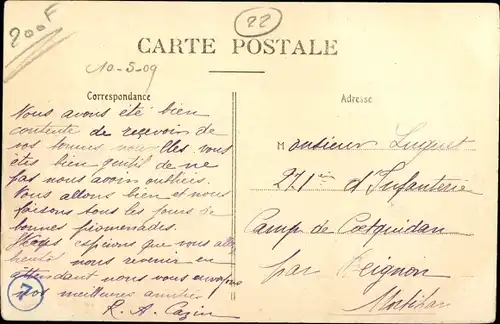 200F
22
CARTE POSTALE
10-5-09
Correspondance
Adresse
Nous avons été bien
contente de recevoir de
vos bonnes nouvelles vous
êtes bien gentil de ne
pas nous avoir oubliés.
Nous allons bien et nous
faisons tous les jours de
bonnes promenades.
Nous espérons que vous allez
bientôt nous revenir en
attendant nous vous envoyons
nos meilleures amitiés
R. A. Cazin
7
Monsieur Luguet
271e d'Infanterie
Camp de Coetquidan
par Beignon
Morbihan